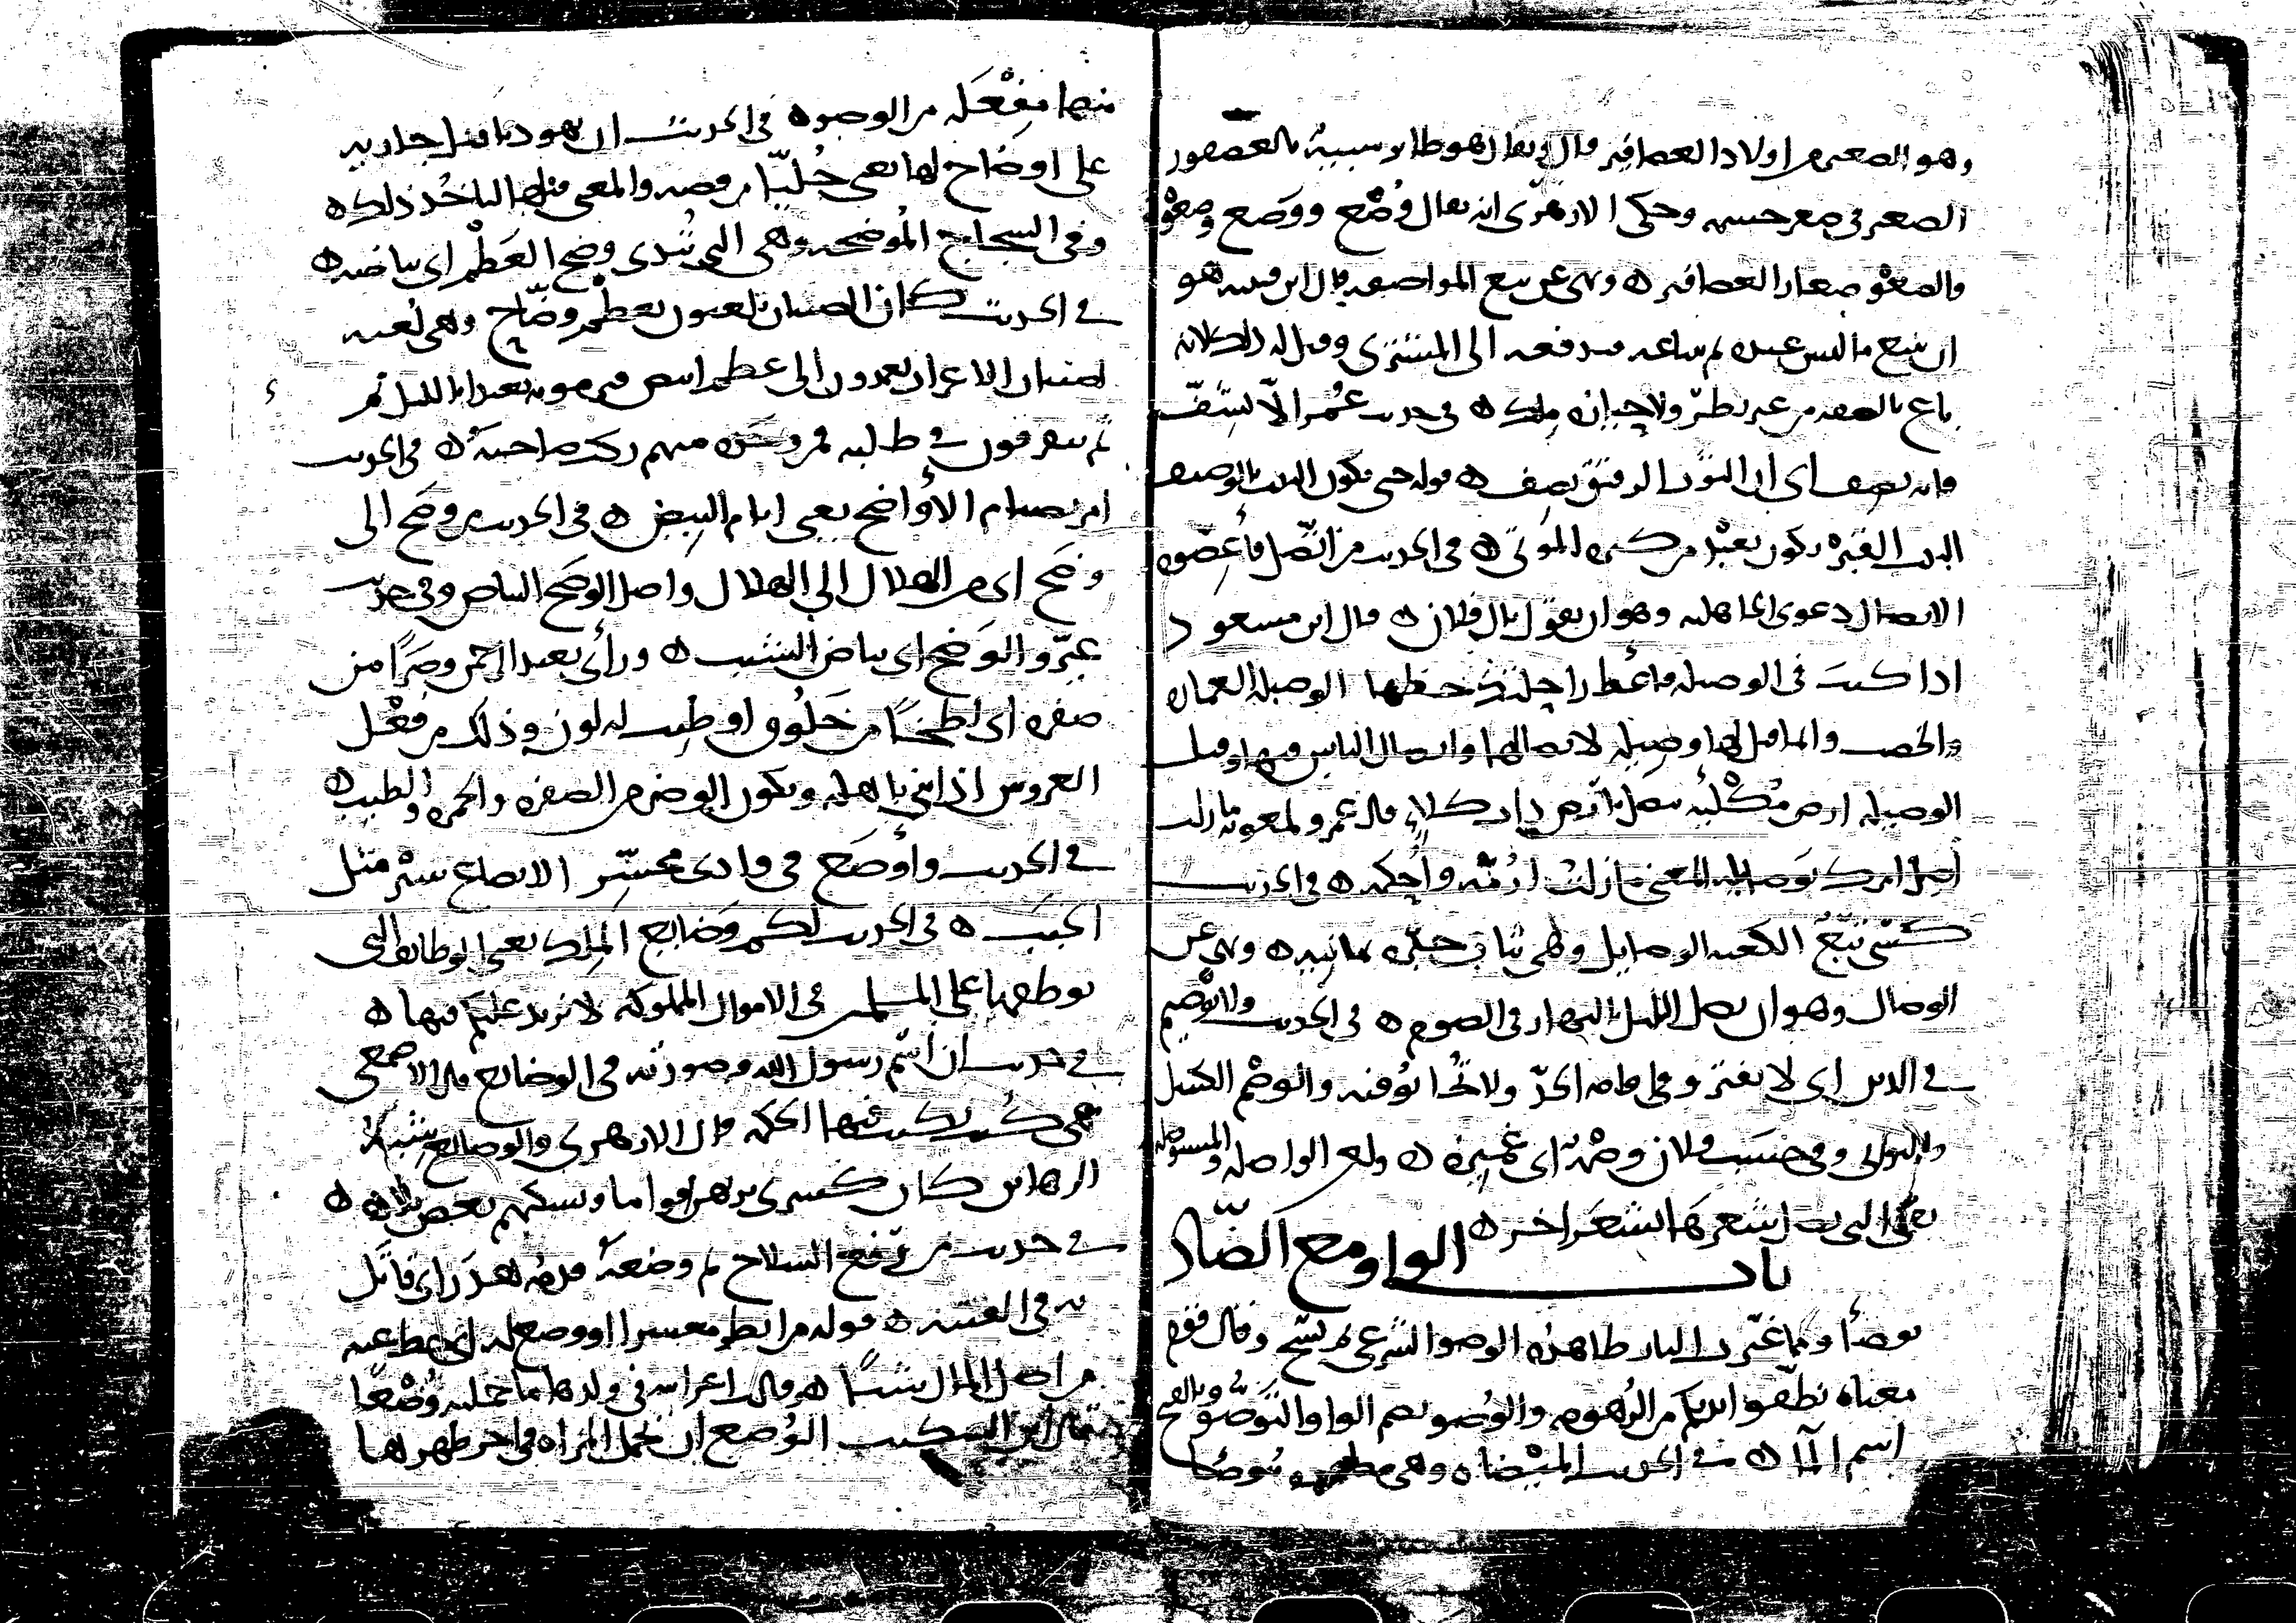 وهو الصغير من اولاد العصافير قال ويقال هو طائر شبيه بالعصفور
الصغير في صغر جسمه وحكى الازهري انه يقال وَصْع ووَصَع وصعو
والصعو صغار العصافير ه ونهى عن بيع المواصفه قال ابن قتيبه هو
ان يبيع ما ليس عنده ثم يبتاعه فيدفعه الى المشتري وقيل له ذلك لانه
باع بالصفه من غير نظر ولا حيازه ملك ه في حديث عمر الا يشف
فانه يصف اي ان الثوب الرقيق يصف ه قوله حتى يكون البيت بالوصيف
البيت القبر ويكون بعبد من كثره الموتى ه في الحديث من اتصل فأعضوه
الاتصال دعوى الجاهليه وهو ان يقول يال فلان ه قال ابن مسعود
اذا كنت في الوصيله فأعط راحلتك حظها الوصيله العماره
والخصب وانما قيل لها وصيله لاتصالها واتصال الناس فيها وقيل
الوصيله ارض مُكْلِئه تتصل باخرى ذات كلاء قال عمرو لمعويه ما زلت
اصل امرك بوصايله المعنى ما زلت ارُمّه واحكمه ه في الحديث
كسى تبع الكعبه الوصايل وهي ثياب حبره يمانيه ه ونهى عن
الوصال وهو ان يصل الليل بالنهار في الصوم ه في الحديث ولا توصيم
في الدين اي لا يفتر وفي اقامه الحد ولا تحابوا فيه والوصم الكسل
والتواني وفي حسب فلان وصمة اي غميزه ه ولعن الواصله والمستوصله
يعني التي تصل شعرها بشعر اخر ه
باب الواو مع الضاد
توضأوا مما غيرت النار ظاهره الوضو الشرعي ثم نسخ وقال قوم
معناه نظفوا ايديكم من الزهومه والوُضو بضم الواو التوضؤ وبالفتح
اسم الماء ه في الحديث الميضاه وهي مطهره يتوضا
منها مِفْعَله من الوضوء ه في الحديث ان يهوديا قتل جاريه
على اوضاح لها يعني حُليّا من فضه والمعنى قتلها لياخذ ذلك ه
وفي الشجاج المُوضحه وهي التي تُبدي وضح العَظْم اي بياضه ه
في الحديث كان الصبيان يلعبون بعظم وضّاح وهي لعبه
لصبيان الاعراب يعمدون الى عظم ابيض فيرمونه بعيدا بالليل ثم
ثم يتفرقون في طلبه فمن وجده منهم ركب صاحبه ه في الحديث
امر بصيام الأواضح يعني ايام البيض ه في الحديث من وضح الى
وضح اي من الهلال الى الهلال واصل الوضح البياض وفي حديث
غيّروا الوَضح اي بياض الشيب ه وراى بعبد الرحمن وضرًا من
صفره اي لطخًا من خَلُوق او طيب له لون وذلك من فعْل
العروس اذا بنى باهله ويكون الوضر من الصفره والحمره والطيب ه
في الحديث وأوضَع في وادي محسّر الايضاع سَيْر مثل
الخبب ه في الحديث لكم وَضايع الملك يعني الوظايف التي
توظفها على المسلمين في الاموال المملوكه لا نزيد عليكم فيها ه
في حديث ان اسم رسول الله وصورته في الوضائع قال الاصمعي
هي كتب تكتب فيها الحكمه قال الازهري والوضائع شبه
الرهاين كان كسرى يرتهن اقواما ويسكنهم بعض بلاده ه
في حديث من رفع السلاح ثم وضعه فدمه هدَر اي قاتل
به في الفتنه ه قوله من انظر معسرا او وضع له اي حط عنه
من اصل المال شيئًا ه وقالت اعرابيه في ولدها ما حملته وُضْعًا
قال ابن السكيت الوُضع ان تحمل المراه في اخر طهرها